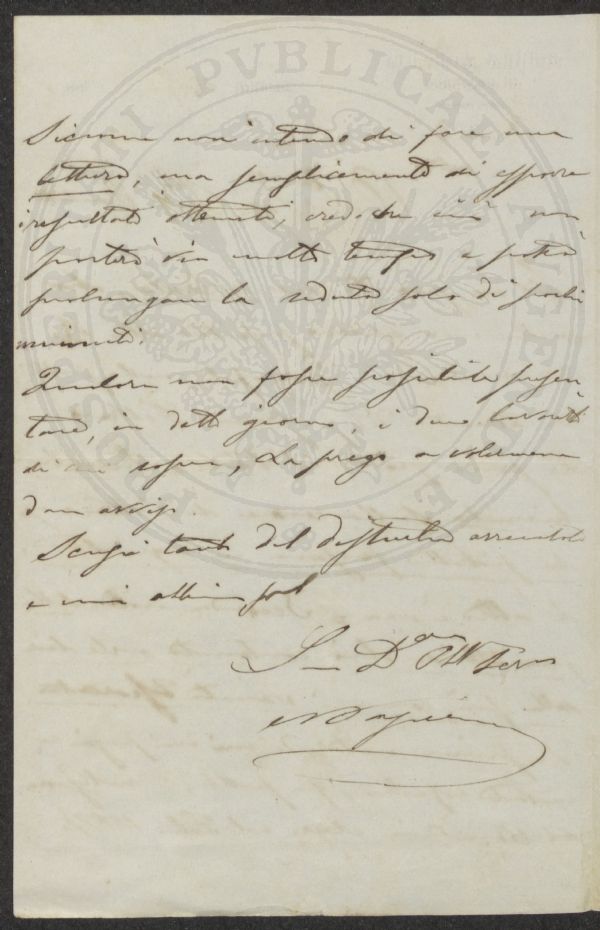 PVBLICAE
Siccome non intendo di fare una
lettura, ma semplicemente di esporre
i resultati ottenuti, credo che ciò non
porterà via molto tempo e potrà
prolungare la seduta solo di pochi
minuti.
Qualora non fosse possibile presen
tare, in detto giorno, i due lavori
di cui sopra, La prego a volermene
dare avviso.
Scusi tanto del disturbo arrecatole
e mi abbia pel
Suo Dev